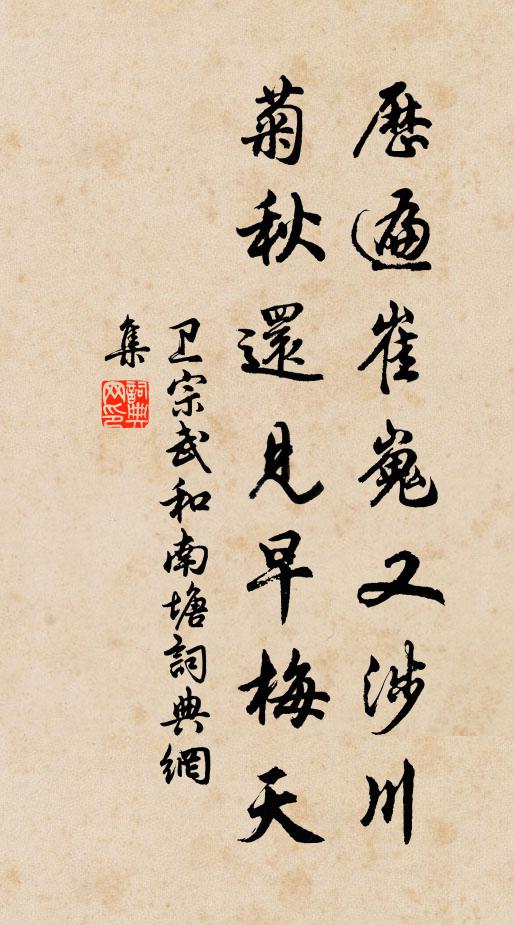 歷遍崔嵬又涉川
菊秋還見早梅天
卫宗武和南塘詞典網
集
詞典
网印